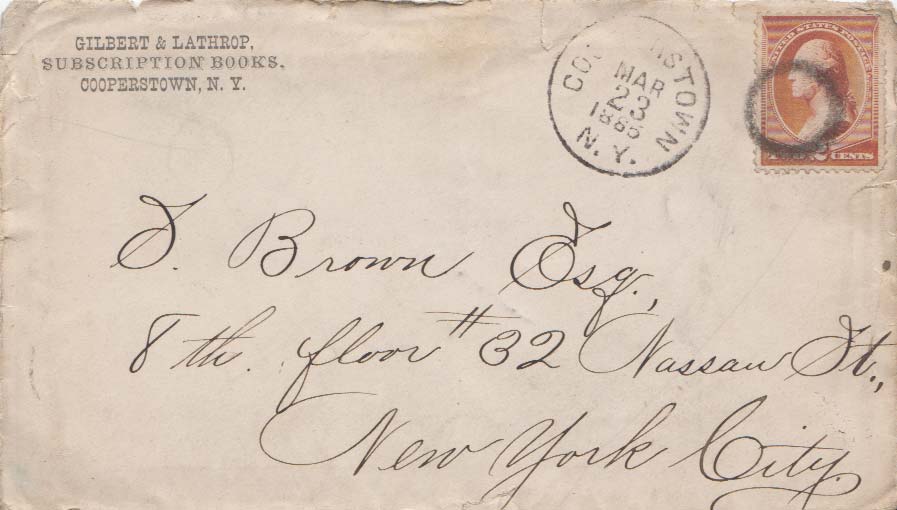 GILBERT & LATHROP,
SUBSCRIPTION BOOKS,
COOPERSTOWN, N. Y.
COOPERSTOWN
MAR
23
1885
N. Y.
UNITED STATES POSTAGE
TWO 2 CENTS
S. Brown Esq.,
8th. floor #32 Nassau St.,
New York City.